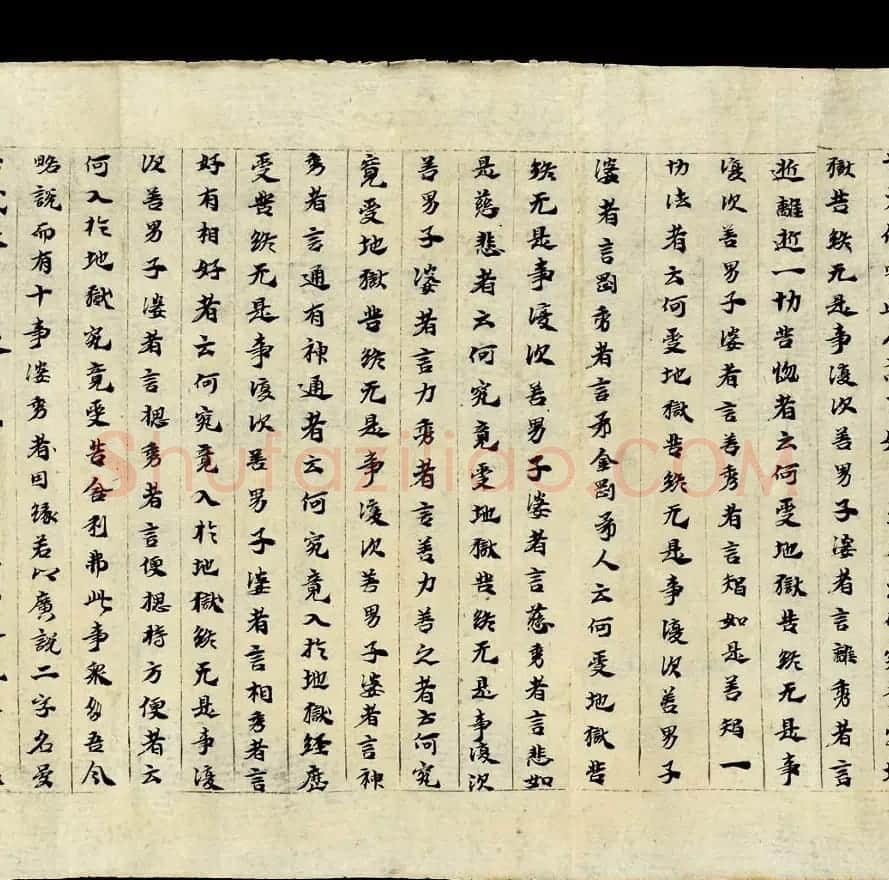 獄苦終无是事復次善男子婆者言離秀者言
逝離逝一切苦惱者云何受地獄苦終无是事
復次善男子婆者言善秀者言智如是善智一
切法者云何受地獄苦終无是事復次善男子
婆者言剛秀者言柔金剛柔人云何受地獄苦
終无是事復次善男子婆者言慈秀者言悲如
是慈悲者云何究竟受地獄苦終无是事復次
善男子婆者言力秀者言善力善之者云何究
竟受地獄苦終无是事復次善男子婆者言神
秀者言通有神通者云何究竟入於地獄經歷
受苦終无是事復次善男子婆者言相秀者言
好有相好者云何究竟入於地獄終无是事復
次善男子婆者言揔秀者言便揔持方便者云
何入於地獄究竟受苦舍利弗此事衆多吾今
略說而有十事婆秀者因緣若以廣說二字名最
Shufaziliao.COM